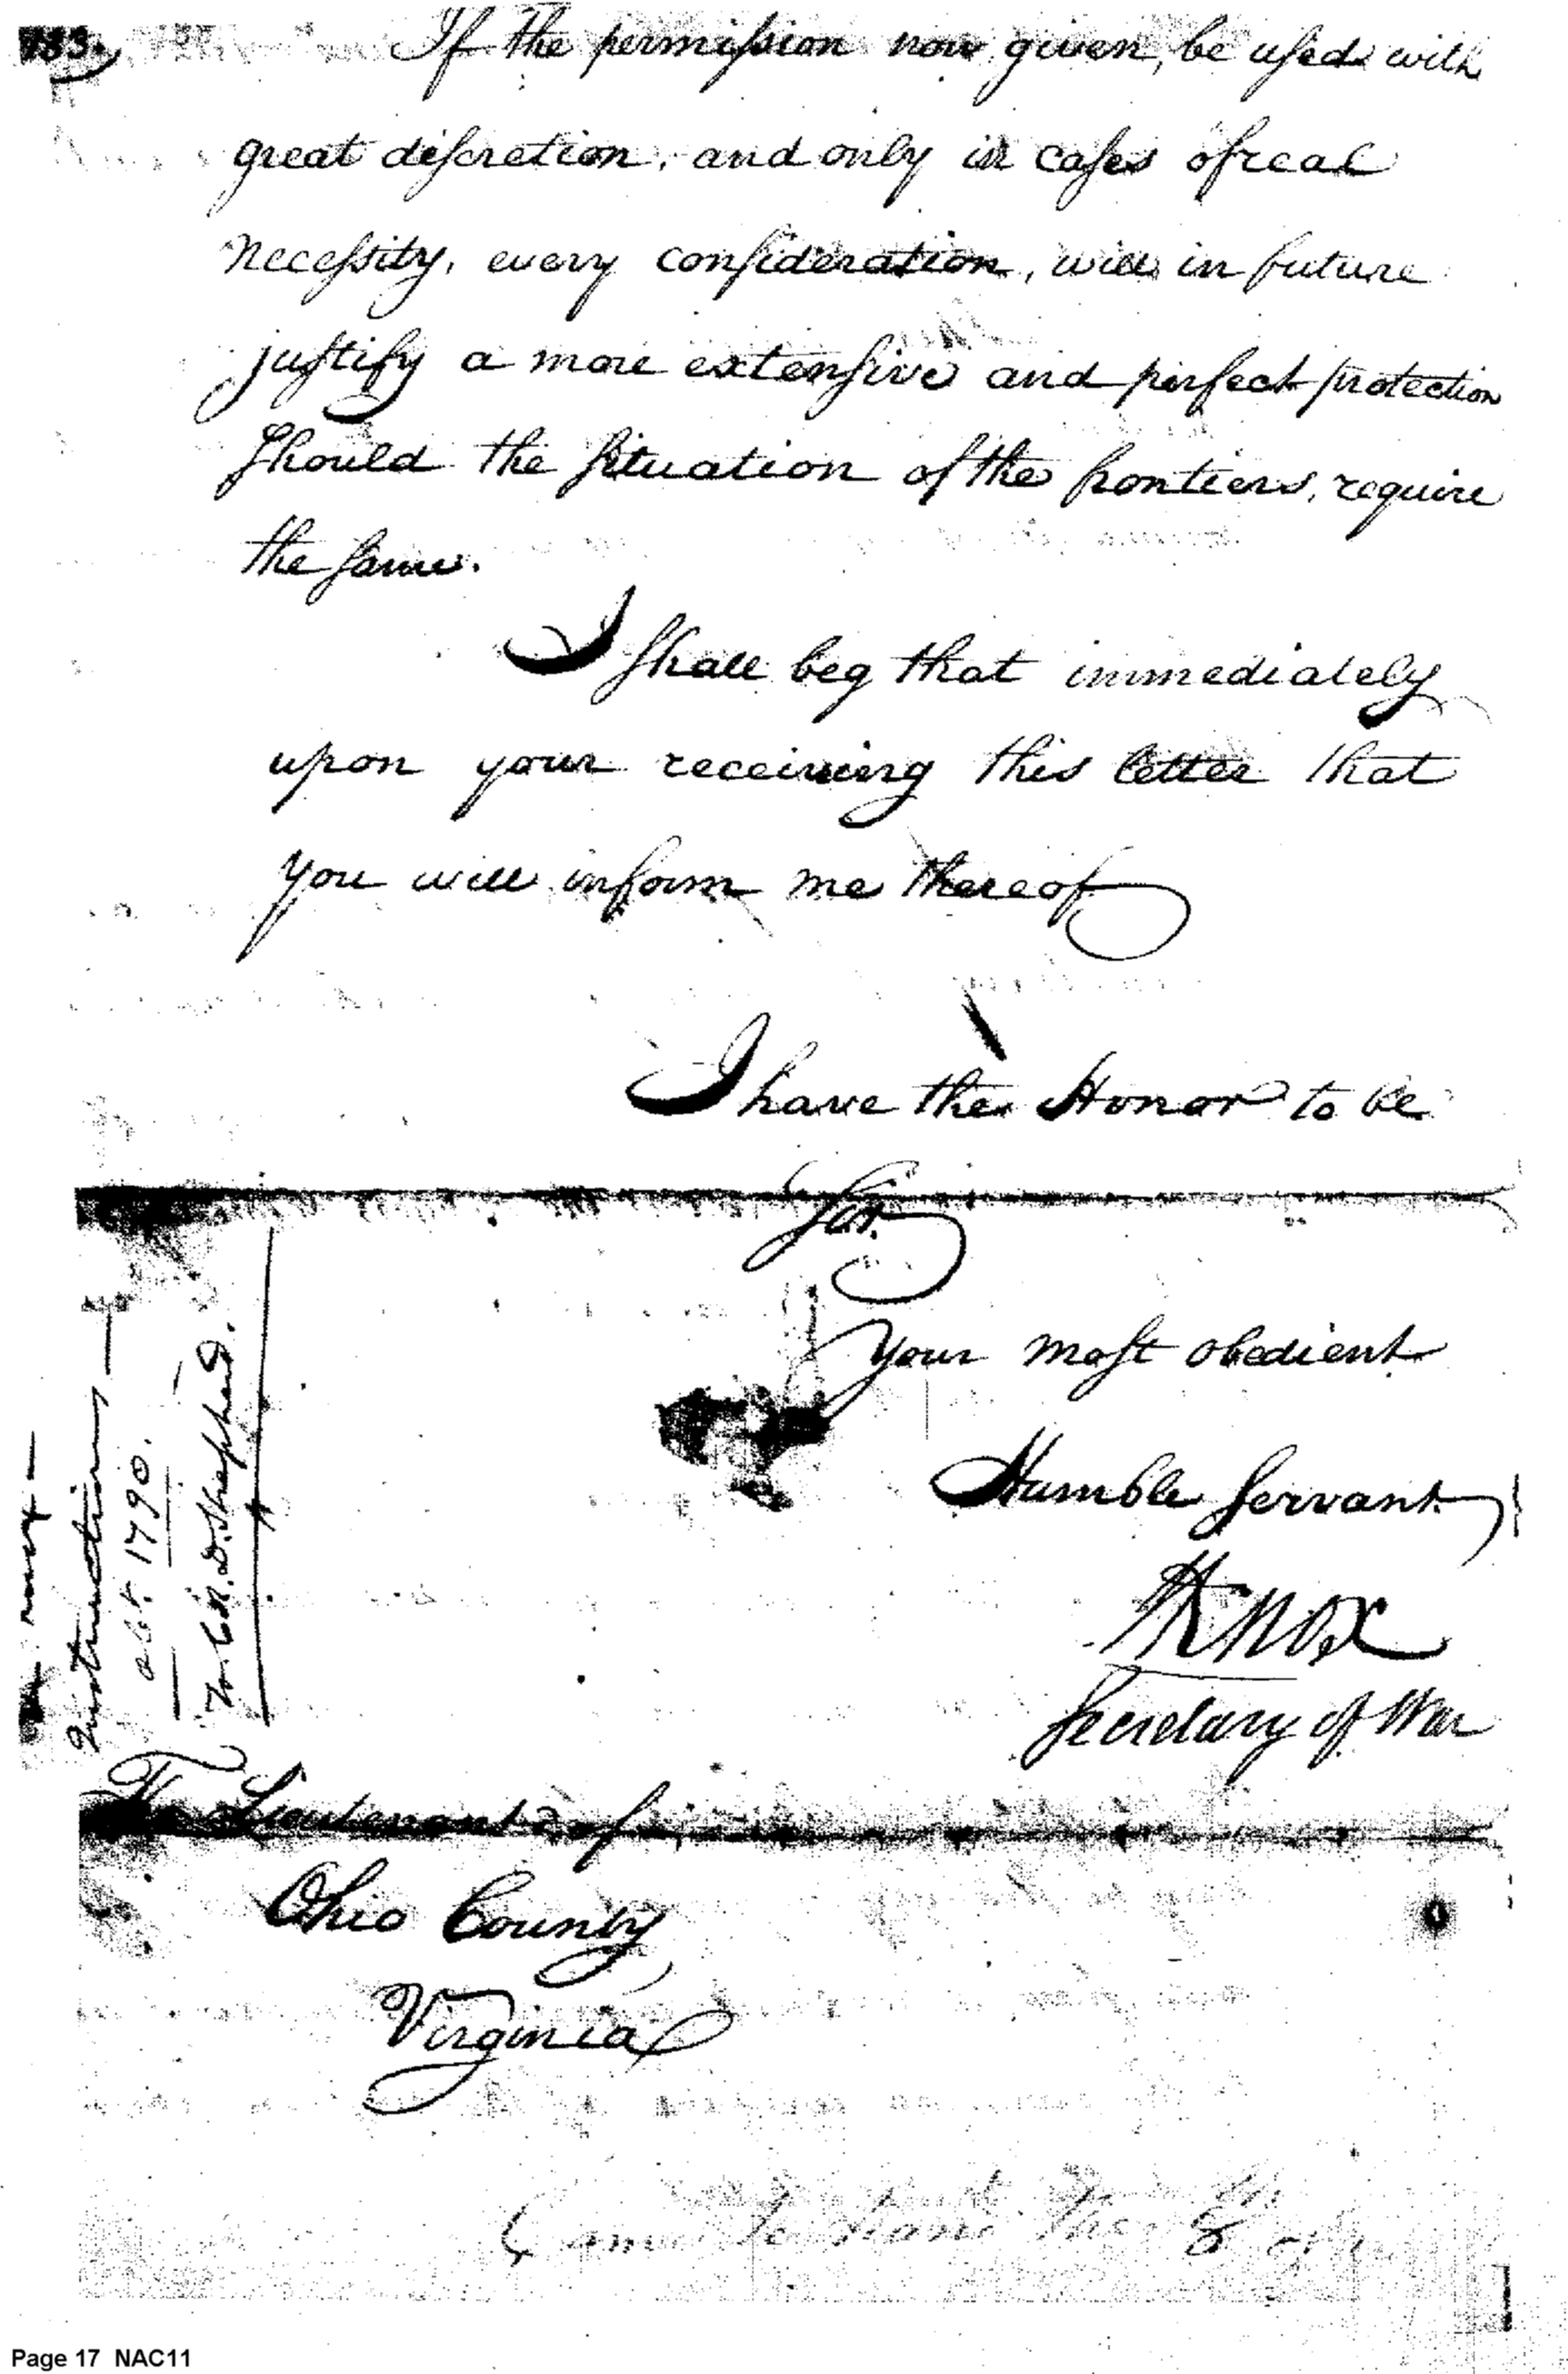 183.
If the permiſsion now given, be uſed with
great diſcretion, and only in caſes of real
neceſsity, every conſideration, will in future
juſtify a more extenſive and perfect protection
ſhould the ſituation of the frontiers, require
the ſame.
I ſhall beg that immediately
upon your receiving this letter that
you will inform me thereof
I have the Honor to be
Sir.
Your moſt obedient
Humble Servant
HKnox
Secretary of War
Instruction
1790.
To Col. D. Shepherd.
To Lieutenant of
Ohio County
Virginia
Came to hand the 8
Page 17 NAC11